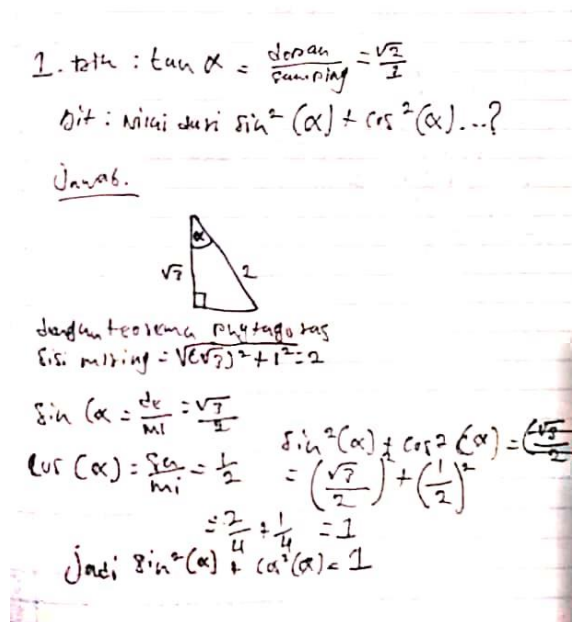 1. Dik : tan α = depan/samping = √3/1
Dit : Nilai dari sin² (α) + cos² (α) ...?
Jawab.
α
√3 2
dengan teorema phytagoras
sisi miring = √(√3)² + 1² = 2
sin (α = de/mi = √3/2
cos (α) = sa/mi = 1/2
sin² (α) + cos² (α) = (√3/2
= (√3/2)² + (1/2)²
= 3/4 + 1/4 = 1
jadi sin² (α) + cos² (α) = 1